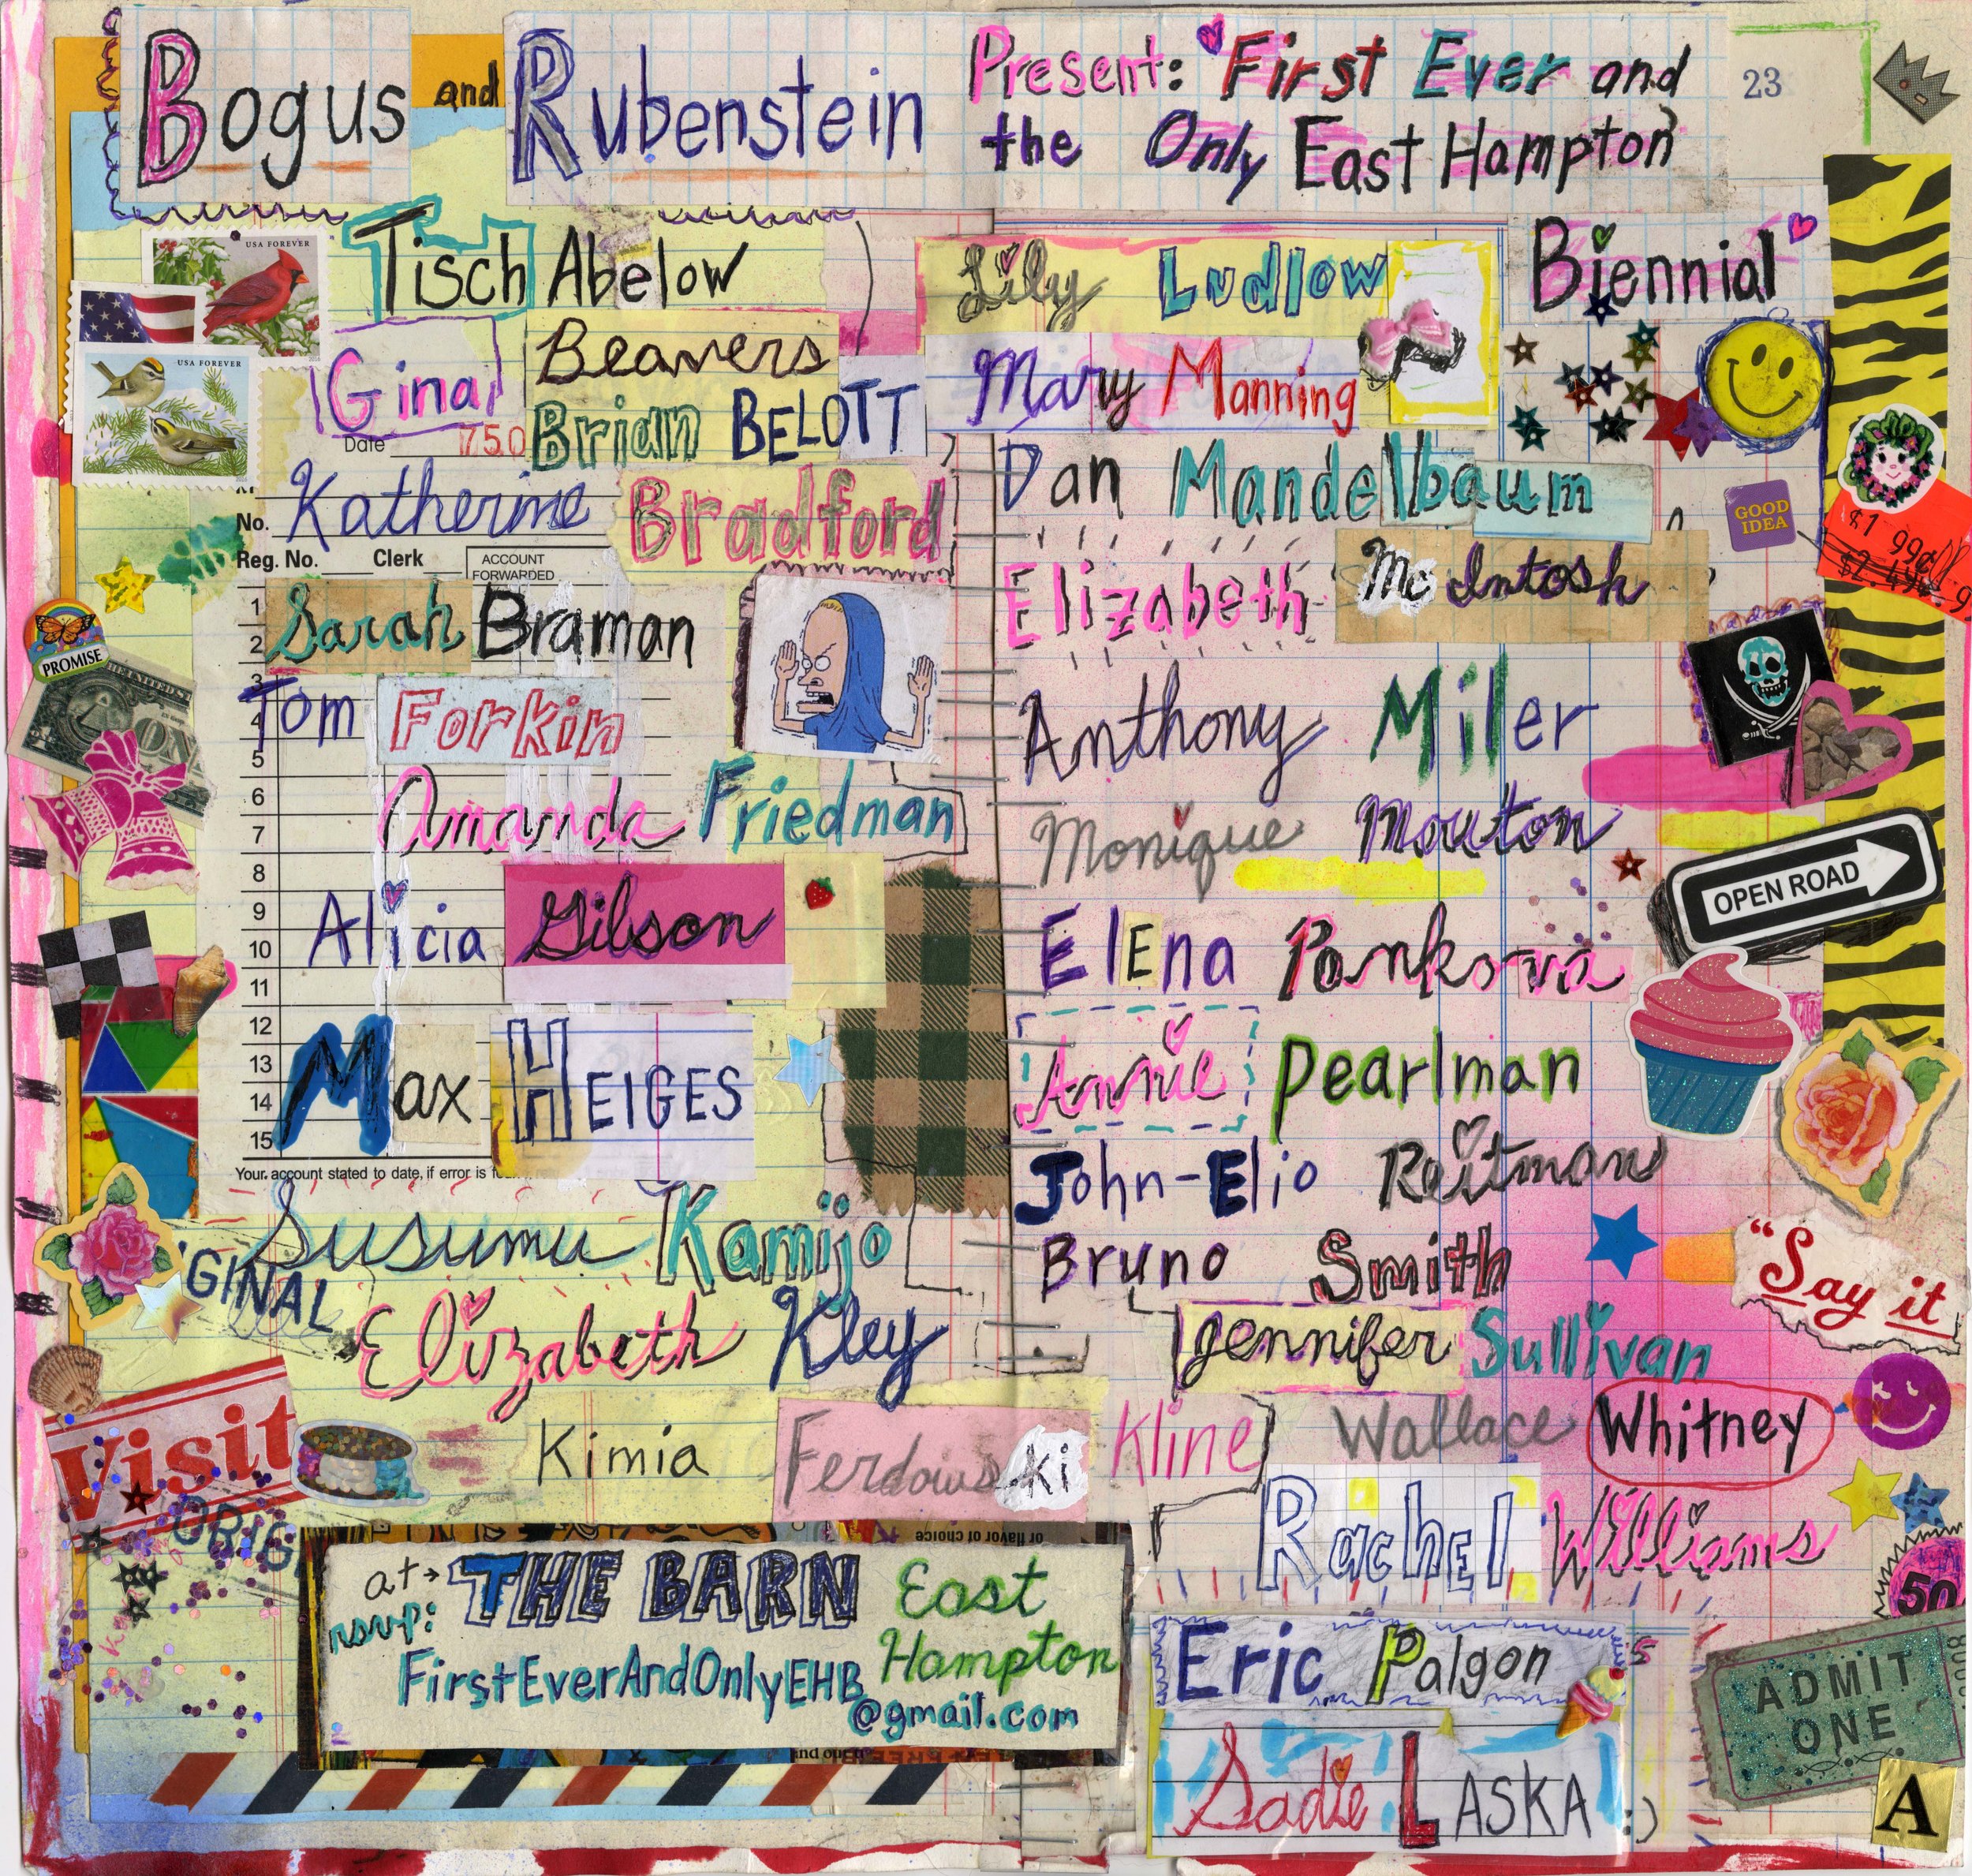 Bogus and Rubenstein
Present: First Ever and
the Only East Hampton
Biennial
23
USA FOREVER
USA FOREVER
Tisch Abelow
Gina Beavers
Brian BELOTT
Date
750
Katherine Bradford
No.
Reg. No. Clerk ACCOUNT
FORWARDED
Sarah Braman
Tom Forkin
Amanda Friedman
Alicia Gilson
Max HEIGES
1
2
3
4
5
6
7
8
9
10
11
12
13
14
15
Your account stated to date, if error is
Susumu Kamijo
GINAL
Elizabeth Kley
Kimia Ferdowski Kline
PROMISE
ONE
Visit
ORIG
Lily Ludlow
Mary Manning
Dan Mandelbaum
Elizabeth McIntosh
Anthony Miler
Monique Mouton
ElEna Pankova
Annie Pearlman
John-Elio Reitman
Bruno Smith
Jennifer Sullivan
Wallace Whitney
RachEl Williams
Eric Palgon
Sadie LASKA :)
GOOD
IDEA
$1 99¢
OPEN ROAD
"Say it
50
ADMIT
ONE
A
or flavor of choice
at→ THE BARN East
Hampton
rsvp:
FirstEverAndOnlyEHB
@gmail.com